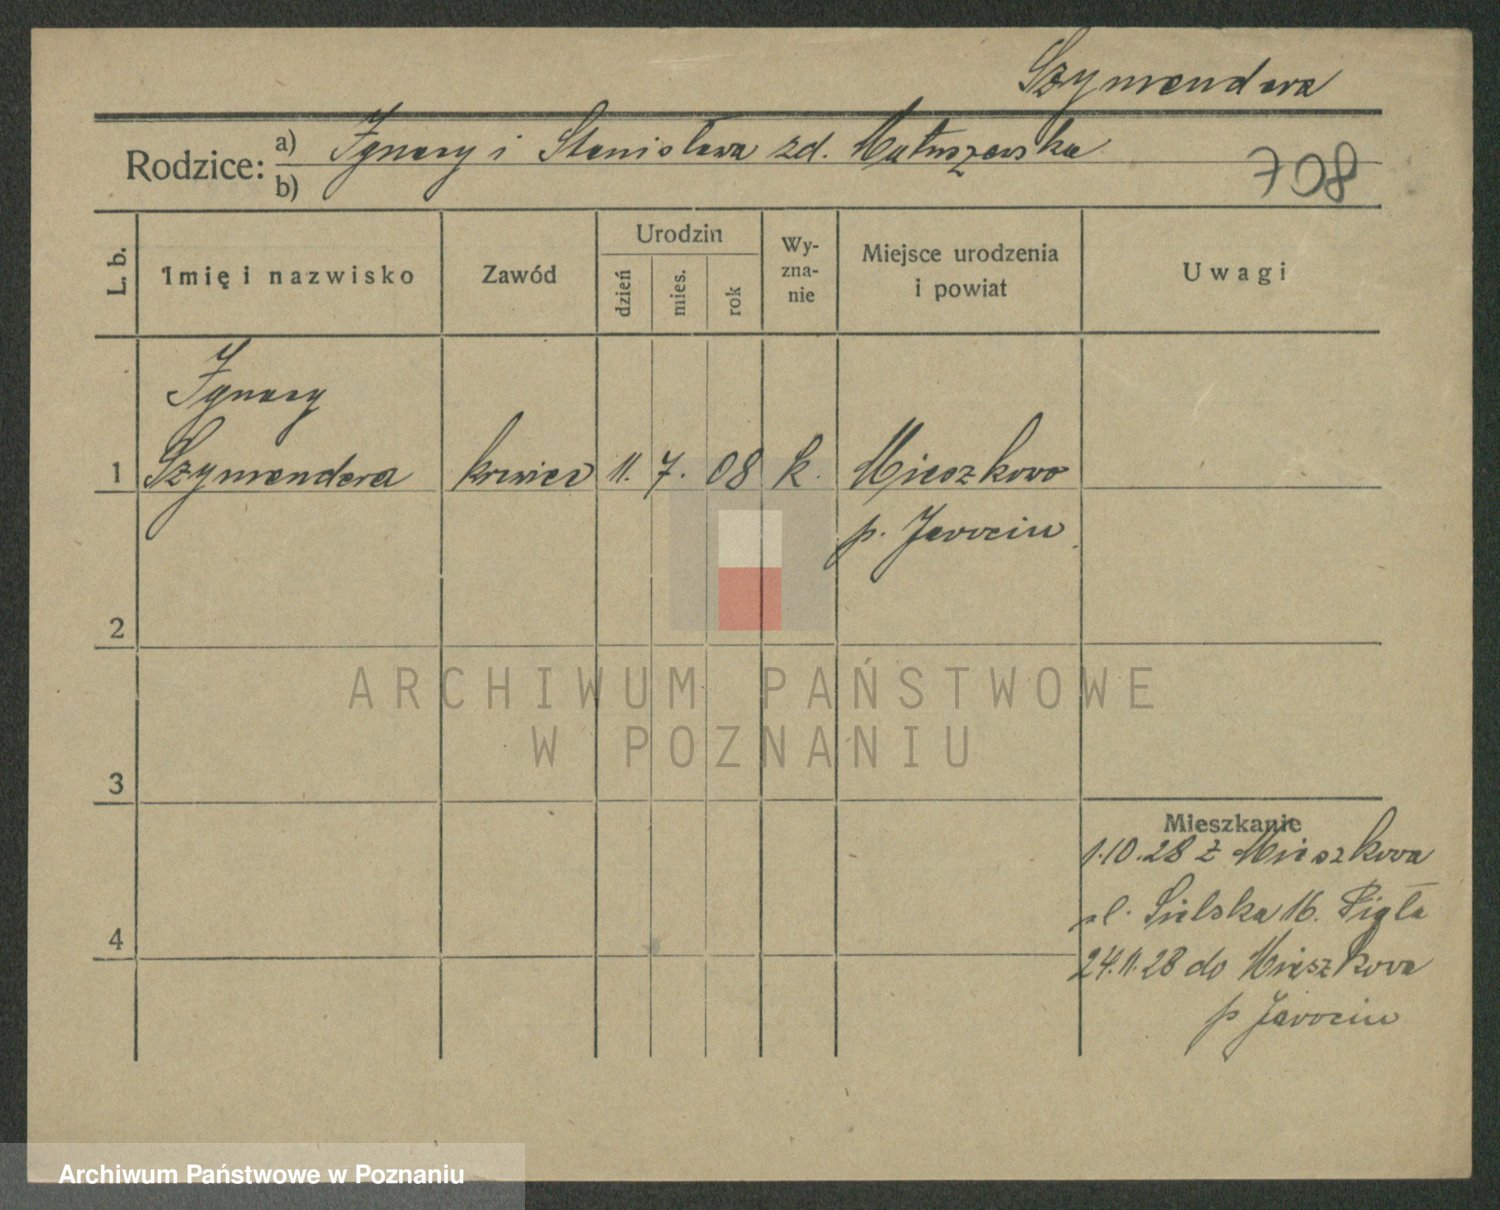 Szymendera
Rodzice: a) Ignacy i Stanisława zd. Matuszewska
b)
708
L. b.
Imię i nazwisko
Zawód
Urodzin
dzień
mies.
rok
Wy-
zna-
nie
Miejsce urodzenia
i powiat
Uwagi
Ignacy
1 Szymendera krawiec 11. 7. 08 k. Mieszkowo
p. Jarocin
2
3
Mieszkanie
1.10.28 z Mieszkowa
ul. Sielska 16.
4
24.11.28 do Mieszkowa
p Jarocin
ARCHIWUM PAŃSTWOWE
W POZNANIU
Archiwum Państwowe w Poznaniu